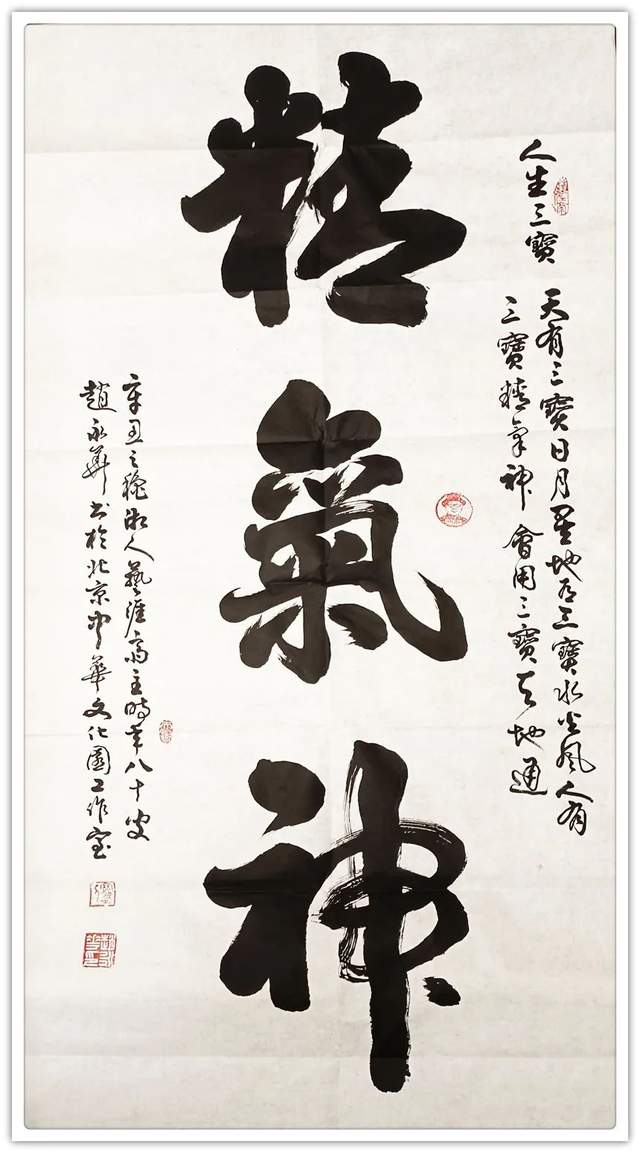 人生三寶
天有三寶日月星地有三寶水火風人有
三寶精氣神會用三寶天地通
精氣神
辛丑之秋湘人藝涯齋主時年八十叟
趙永華書於北京中華文化園工作室